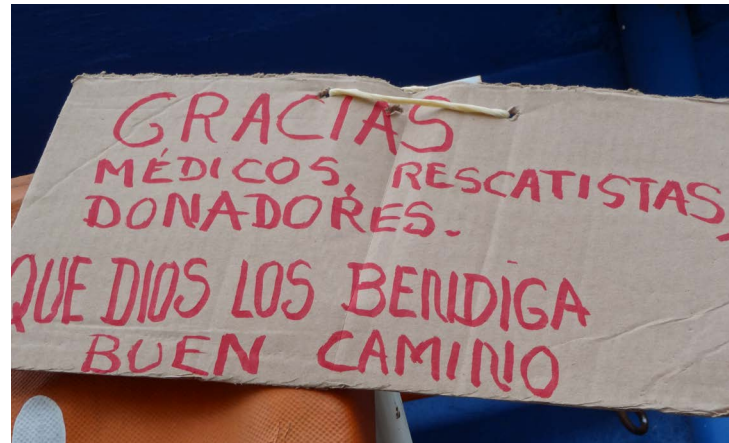 GRACIAS
MÉDICOS, RESCATISTAS,
DONADORES.
QUE DIOS LOS BENDIGA
BUEN CAMINO